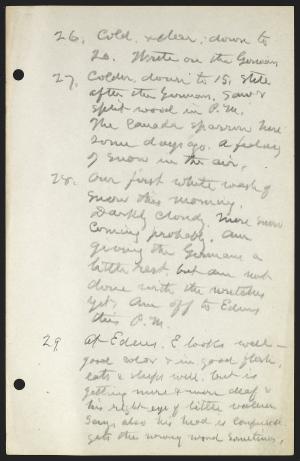 26. Cold & clear; down to
20. Write on the Germans
27. Colder, down to 15. Still
after the Germans. Saw &
split wood in P.M.
The Canada sparrow here
some days ago. A feeling
of snow in the air.
28. Our first white wash of
snow this morning.
Darkly cloudy. More snow
coming probably. Am
giving the Germans a
little rest, but am not
done with the wretches
yet. Am off to Edens
this P.M.
29 At Edens. E looks well -
good color & in good flesh,
eats & sleeps well, but is
getting more & more deaf &
his right eye of little value.
Says also his head is confused
gets the wrong word sometimes,